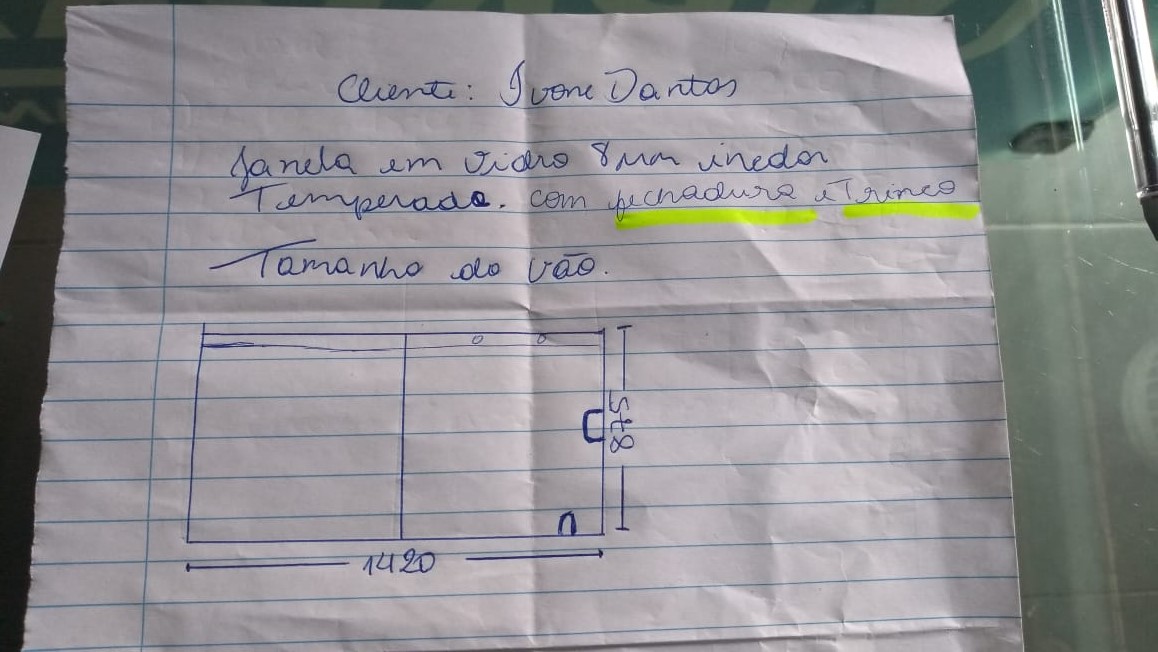 Cliente: Ivone Dantas
Janela em vidro 8mm incolor
Temperado. com fechadura e Trinco
Tamanho do vão.
875
1420